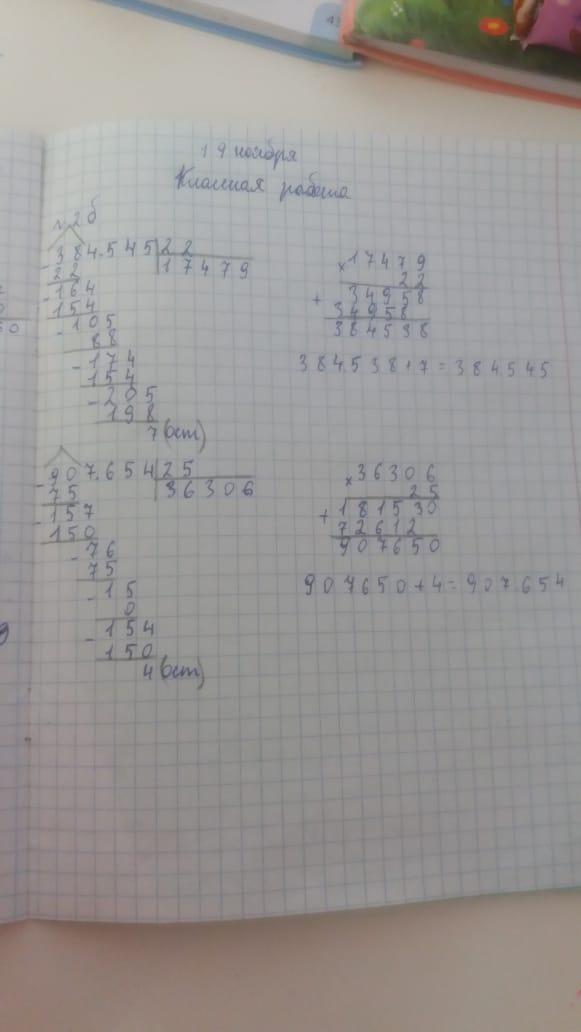 19 ноября
Классная работа
№26
- 384.545 22
22 17479
- 164
154
- 105
88
- 174
154
- 205
198
7 (ост)
× 17479
22
+ 34958
34958
384538
384538+7=384545
- 907.654 25
75 36306
- 157
150
- 76
75
- 15
0
- 154
150
4 (ост)
× 36306
25
+ 181530
72612
907650
907650+4=907.654